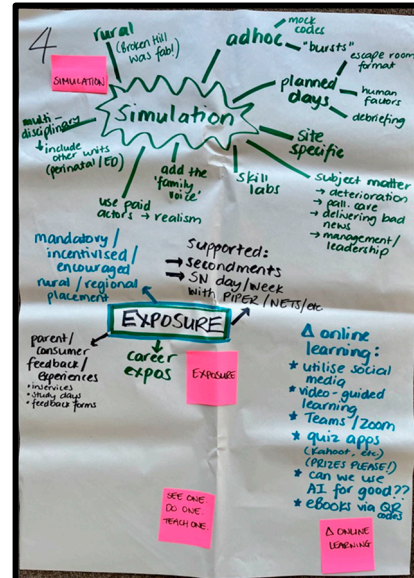 4
SIMULATION
rural
(Broken Hill
was fab!)
adhoc
mock
codes
"bursts"
planned
days
escape room
format
human
factors
debriefing
Simulation
multi-
disciplinary
↳ include
other units
(perinatal/ED)
site
specific
use paid
actors → realism
add the
'family
voice'
skill
labs
subject matter
→ deterioration
→ pall. care
→ delivering bad
news
→ management/
leadership
mandatory/
incentivised/
encouraged
rural/regional
placement
Supported:
→ secondments
→ SN day/week
with PIPER/NETS/etc
EXPOSURE
parent/
consumer
feedback/
experiences
• inservices
• study days
• feedback forms
career
expos
EXPOSURE
Δ online
learning:
* utilise social
media
* video-guided
learning
* Teams/Zoom
* quiz apps
(Kahoot, etc.)
(PRIZES PLEASE!)
* can we use
AI for good??
* eBooks via QR
codes
SEE ONE.
DO ONE.
TEACH ONE.
Δ ONLINE
LEARNING